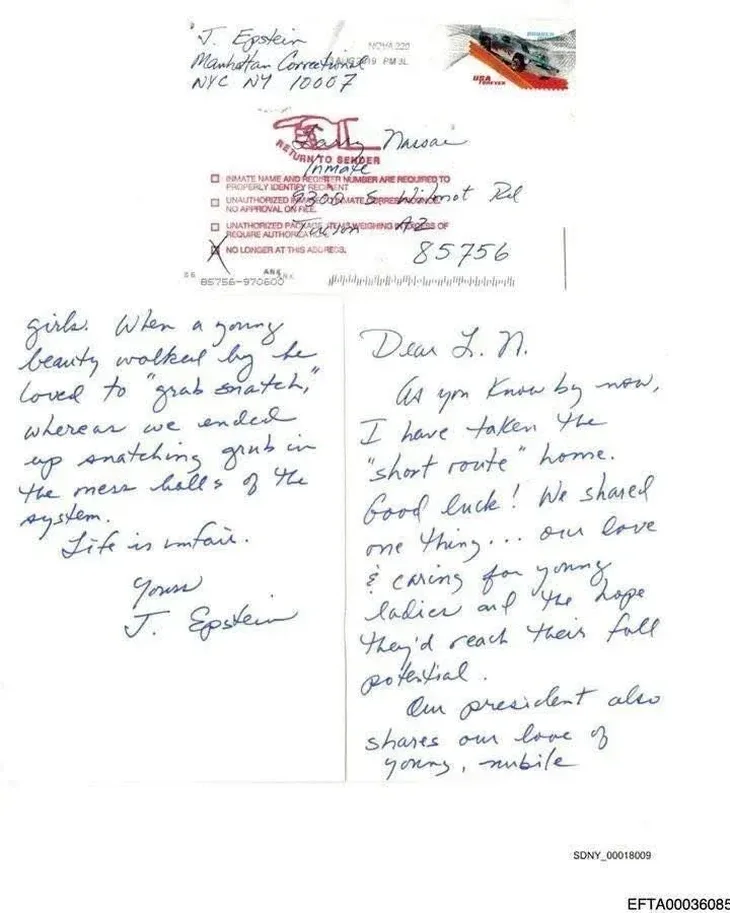 J. Epstein
Manhattan Correctional
NYC NY 10007
NOVA 220
2019 PM 3L
FOREVER
USA
FOREVER
RETURN TO SENDER
Larry Nassar
Inmate
INMATE NAME AND REGISTER NUMBER ARE REQUIRED TO
PROPERLY IDENTIFY RECIPIENT
9300 S Wilmot Rd
UNAUTHORIZED INMATE
NO APPROVAL ON FILE.
UNATHORIZED PACKAGE, ITEMS WEIGHING IN EXCESS OF
REQUIRE AUTHORIZA
Tucson AZ
NO LONGER AT THIS ADDRESS.
85756
85756-970600
ANK
Dear L. N.
As you know by now,
I have taken the
"short route" home.
Good luck! We shared
one thing... our love
& caring for young
ladies and the hope
they'd reach their full
potential.
Our president also
shares our love of
young, nubile
girls. When a young
beauty walked by he
loved to "grab snatch,"
whereas we ended
up snatching grub in
the mess halls of the
system.
Life is unfair.
Yours
J. Epstein
SDNY_00018009
EFTA00036085